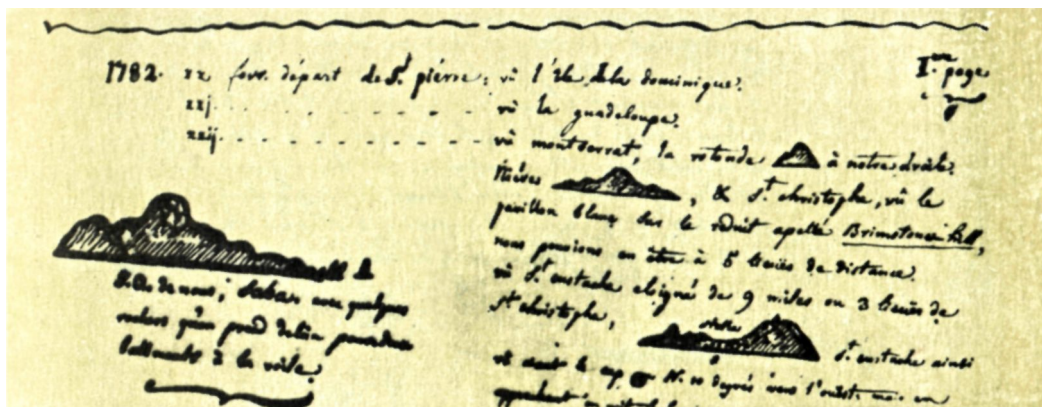 1782. xx fevr. départ de St. piérre; vû l'Ile de la dominique.
Iere. page
xxj. vû la guadeloupe.
xxij. vû montserrat, la rotonde à notre droite.
Niéves, & St. christophe, vû le
pavillon blanc sur le réduit apellé Brimstone hill,
nous pensions en être à 5 lieuës de distance.
vû St. eustache eloigné de 9 miles ou 3 lieuës de
St. christophe,
St. eustache ainsi
vû avant le cap N. 10 degrés vers l'ouest. mais en
de nous; Saba avec quelques
rochers qu'on prend de loin pour des
battiments à la voile.